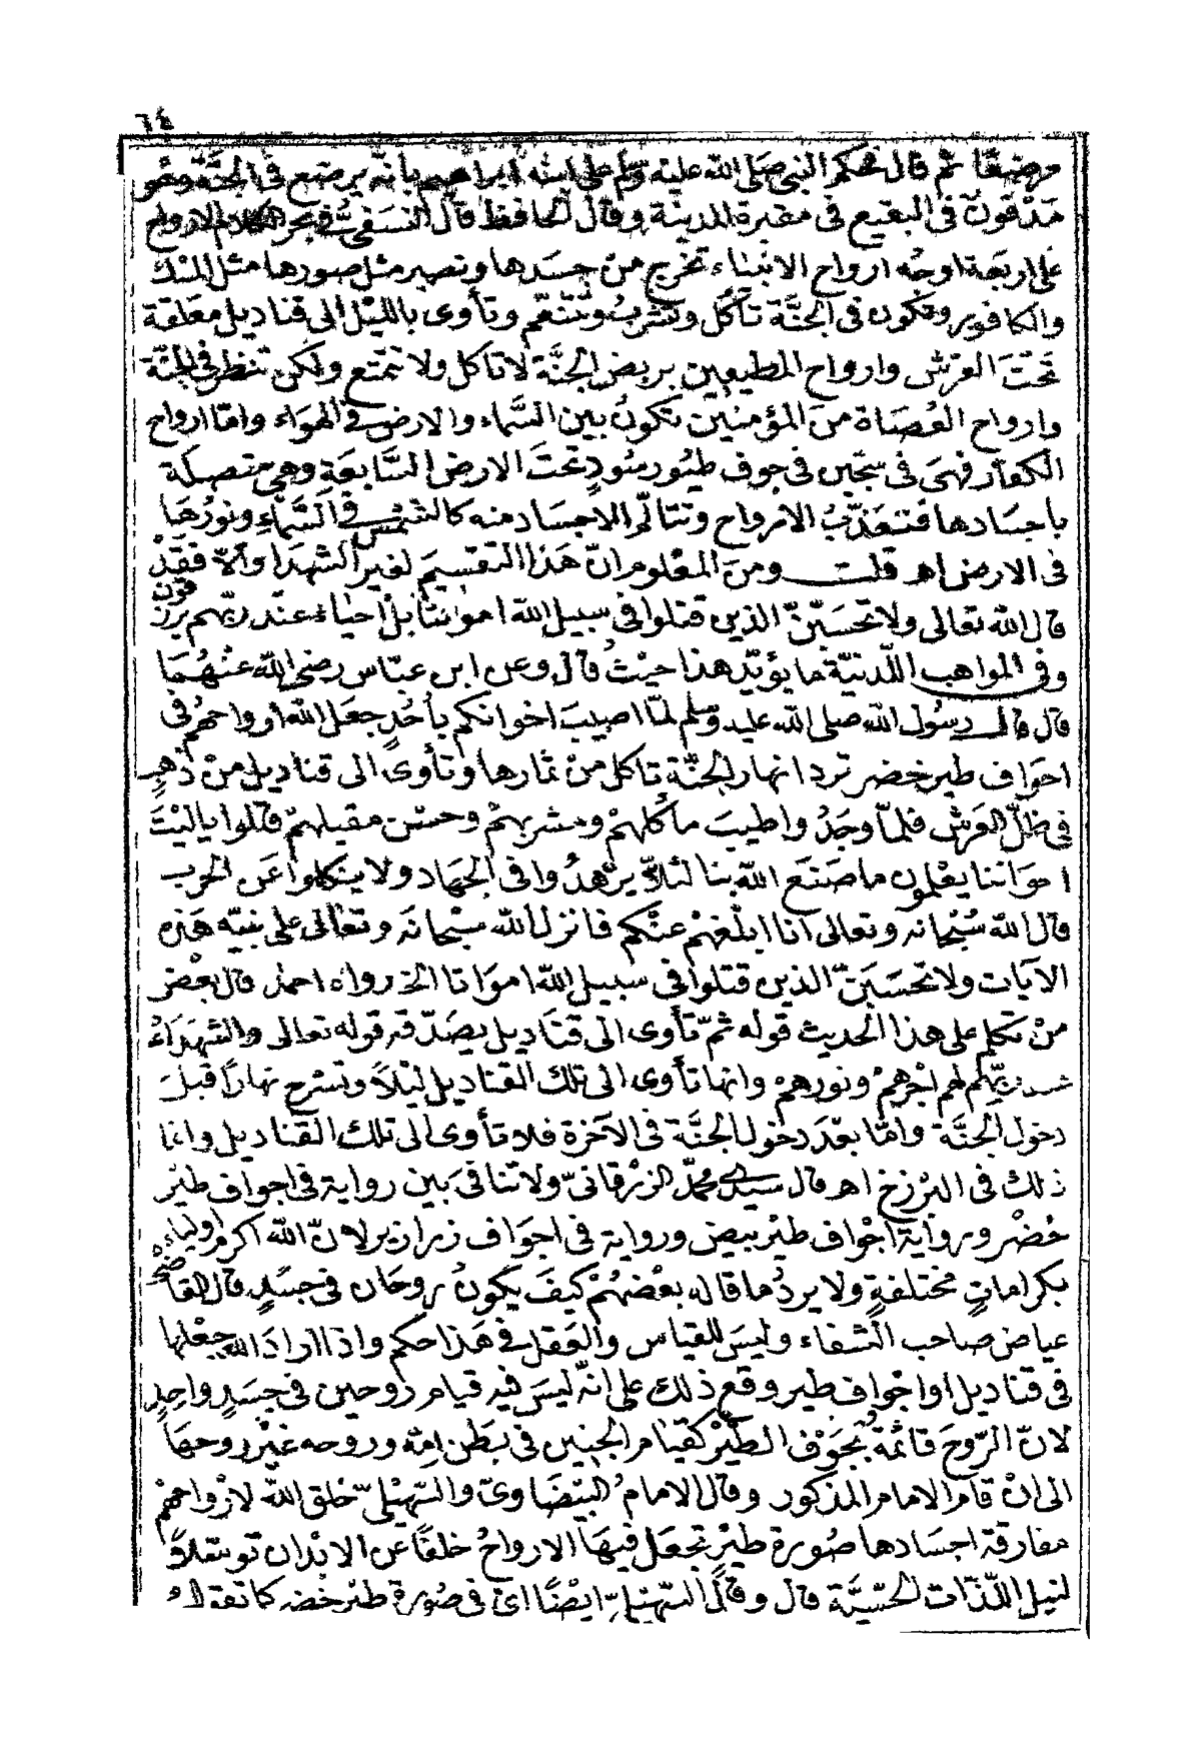 ٦٤
مرضعًا ثم قال فحكم النبي صلى الله عليه وسلم على ابنه ابراهيم بانه يرضع في الجنة وهو
مدفون في البقيع في مقبرة المدينة وقال الحافظ قال النسفي في بحر الكلام الارواح
على اربعة اوجه ارواح الانبياء تخرج من جسدها وتصير مثل صورها مثل المسك
والكافور وتكون في الجنة تأكل وتشرب وتتنعم وتأوى بالليل الى قناديل معلقة
تحت العرش وارواح المطيعين بربض الجنة لا تاكل ولا تتمتع ولكن تنظر في الجنة
وارواح العصاة من المؤمنين تكون بين السماء والارض في الهواء واما ارواح
الكفار فهي في سجين في جوف طيور سود تحت الارض السابعة وهي متصلة
باجسادها فتعذب الارواح وتتألم الاجساد منه كالشمس في السماء ونورها
في الارض اهـ قلت ومن المعلوم ان هذا التقسيم لغير الشهدا والا فقد
قال الله تعالى ولا تحسبن الذين قتلوا في سبيل الله امواتا بل احياء عند ربهم يرزقون
وفي المواهب اللدنية ما يؤيد هذا حيث قال وعن ابن عباس رضي الله عنهما
قال قال رسول الله صلى الله عليه وسلم لما اصيب اخوانكم بأحد جعل الله ارواحهم في
اجواف طير خضر ترد انهار الجنة تاكل من ثمارها وتأوى الى قناديل من ذهب
في ظل العرش فلما وجدوا طيب مأكلهم ومشربهم وحسن مقيلهم قالوا ياليت
اخواننا يعلمون ما صنع الله بنا لئلا يزهدوا في الجهاد ولا ينكلوا عن الحرب
قال الله سبحانه وتعالى انا ابلغهم عنكم فانزل الله سبحانه وتعالى على نبيه هذه
الآيات ولا تحسبن الذين قتلوا في سبيل الله امواتا الخ رواه احمد قال بعض
من تكلم على هذا الحديث قوله ثم تأوى الى قناديل يصدقه قوله تعالى والشهداء
عند ربهم لهم اجرهم ونورهم وانها تأوى الى تلك القناديل ليلاً وتسرح نهارًا قبل
دخول الجنة واما بعد دخول الجنة في الآخرة فلا تأوى الى تلك القناديل وانما
ذلك في البرزخ اهـ قال سيدي محمد الزرقاني ولا تنافى بين رواية في اجواف طير
خضر ورواية اجواف طير بيض ورواية في اجواف زرازير لان الله اكرم اولياءه
بكرامات مختلفة ولا يرد ما قاله بعضهم كيف يكون روحان في جسد قال القاضي
عياض صاحب الشفاء وليس للقياس والعقل في هذا حكم واذا اراد الله جعلها
في قناديل او اجواف طير وقع ذلك على انه ليس فيه قيام روحين في جسد واحد
لان الروح قائمة بجوف الطير كقيام الجنين في بطن امه وروحه غير روحها
الى ان قام الامام المذكور وقال الامام البيضاوى والسهيلي خلق الله لارواحهم
مفارقة اجسادها صورة طير تجعل فيها الارواح خلفًا عن الابدان توسلاً
لنيل اللذات الحسية قال وقال السهيلي ايضًا اى في صورة طير خضر كما تقول